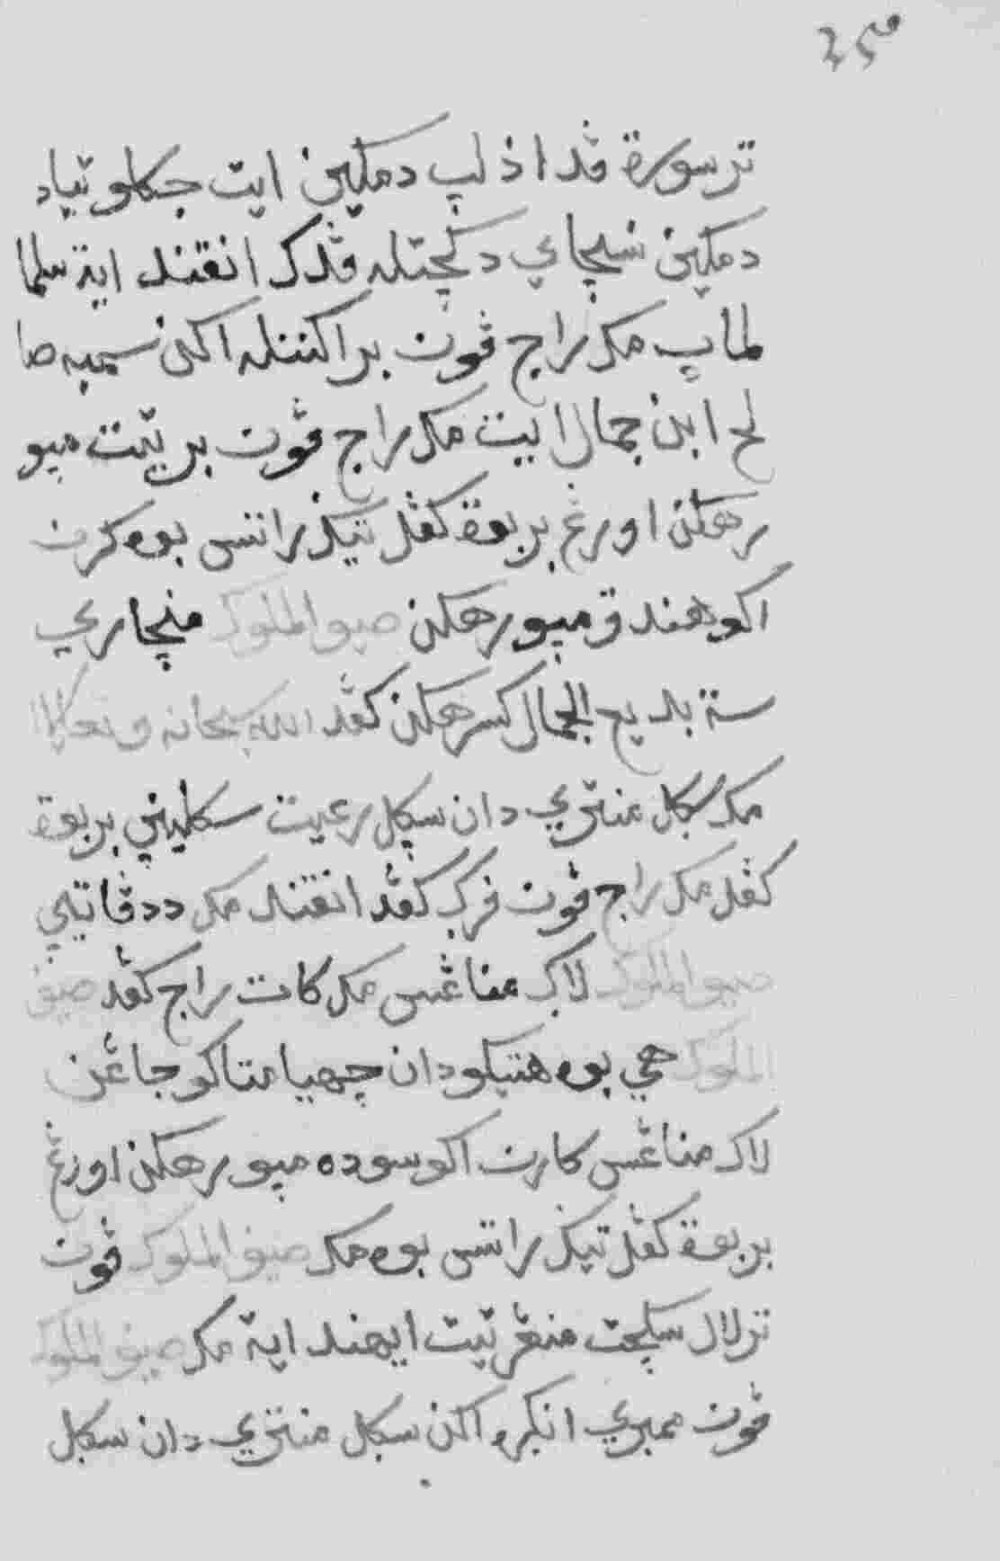 ترسورة ڤد اذ لڤ دمكين ايت جكلو تياد
دمكين نسچاي دكچتله ڤدك انقند اية سلما
لماپ مك راج ڤون براكتنله اكن سمبه صا
لح ابن جمال ايت مك راج ڤون برتيت ميو
رهكن اورڠ بربوة كڤل تيݢ راتس بوه كرن
اكو هندق ميورهكن صيف الملوك منچاري
ستة بديع الجمال كسرهكن كڤد الله سبحانه وتعالى
مك سݢل منتري دان سݢل رعيت سكلين بربوة
كڤل مك راج ڤون ڤرݢ كڤد انقند مك ددڤاتي
صيف الملوك لاݢ مناڠس مك كات راج كڤد صيف
الملوك هي بوه هتيكو دان چهيا متاكو جاڠن
لاݢ مناڠس كارن اكو سوده ميورهكن اورڠ
بربوة كڤل تيݢ راتس بوه مك صيف الملوك ڤون
ترلال سكچت منڠر تيت ايهند اية مك صيف الملوك
ڤون ممبري انݢره اكن سݢل منتري دان سݢل